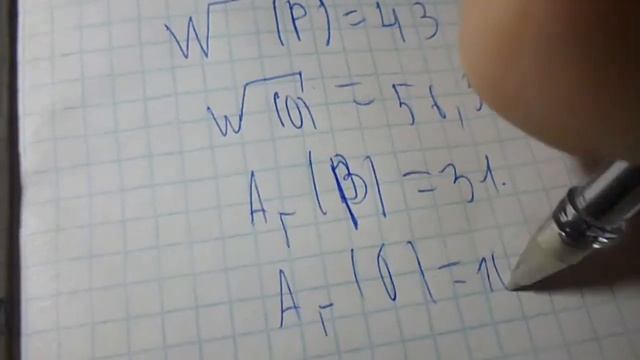 W (P) = 43
W (O) = 51,
Ar (P) = 31.
Ar (O) = 1